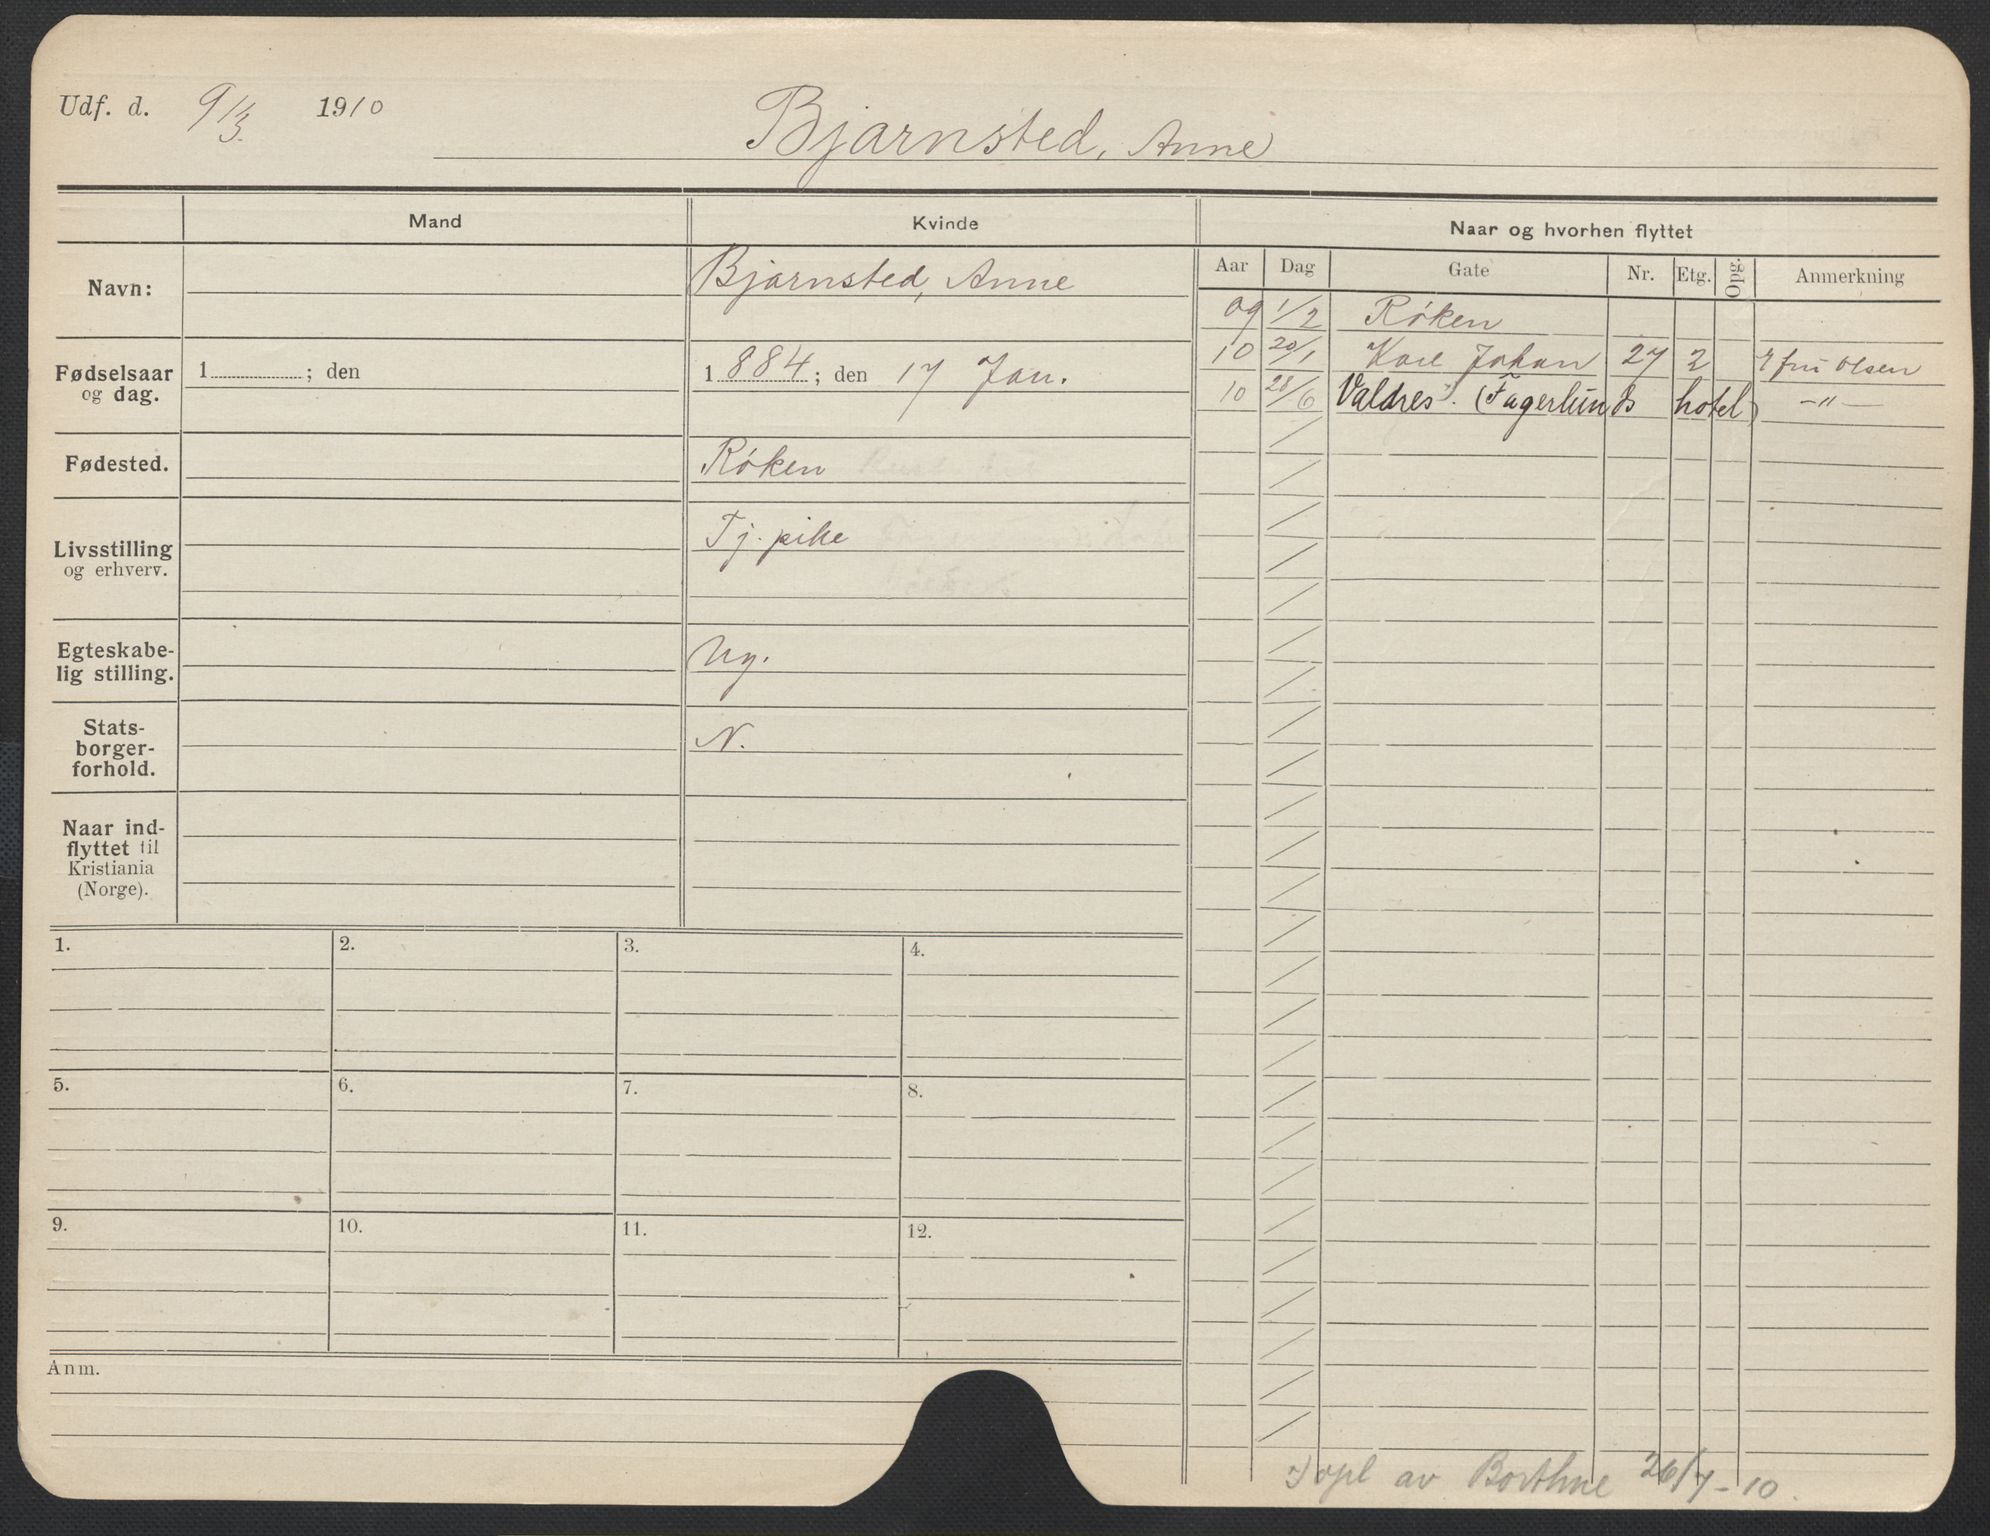 Udf. d. 9/3. 1910
Bjarnsted, Anne
Mand Kvinde Naar og hvorhen flyttet
Aar Dag Gate Nr. Etg. Opg. Anmerkning
Navn: Bjarnsted, Anne
09 1/2 Røken
10 20/1 Karl Johan 27 2 fru Olsen
10 28/6 Valdres. (Fagerlunds hotel) -"-
Fødselsaar
og dag.
1 ; den 1 884 ; den 17 Jan.
Fødested. Røken
Livsstilling
og erhverv.
Tj. pike
Egteskabe-
lig stilling.
Ug.
Stats-
borger-
forhold.
N.
Naar ind-
flyttet til
Kristiania
(Norge).
1. 2. 3. 4.
5. 6. 7. 8.
9. 10. 11. 12.
Anm.
opl av Borthne 26/7-10.